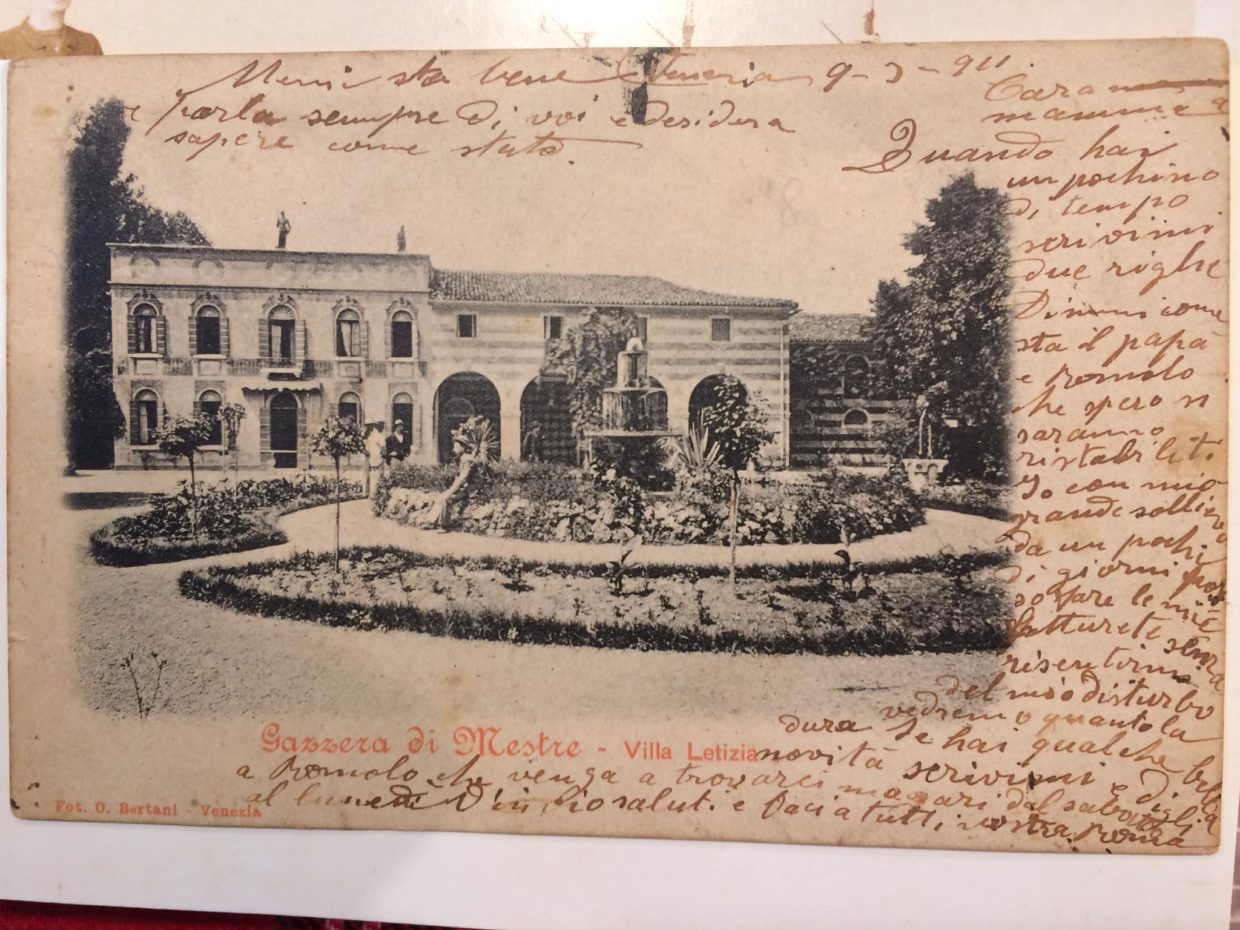 Meni sta bene Venezia 9-7-911.
e parla sempre di voi e desidera
sapere come state.
Cara
mamma
Quando hai
un pochino
di tempo
scrivimi
due righe
Dimmi come
sta il papà
e Romolo
che spero si
saranno
ristabiliti.
Io con mio
grande sollievo
da un pochi
di giorni pos
so fare le mie
fatturete senza
risentirmi
del mio disturbo
vedremo quanto la
dura Se hai qualche bella
novità scrivimi e digli
a Romolo che venga a trovarci magari dal sabato
al lunedì T'invio saluti e baci a tutti vostra Roma
Gazzera di Mestre - Villa Letizia
Fot. O. Bertani - Venezia